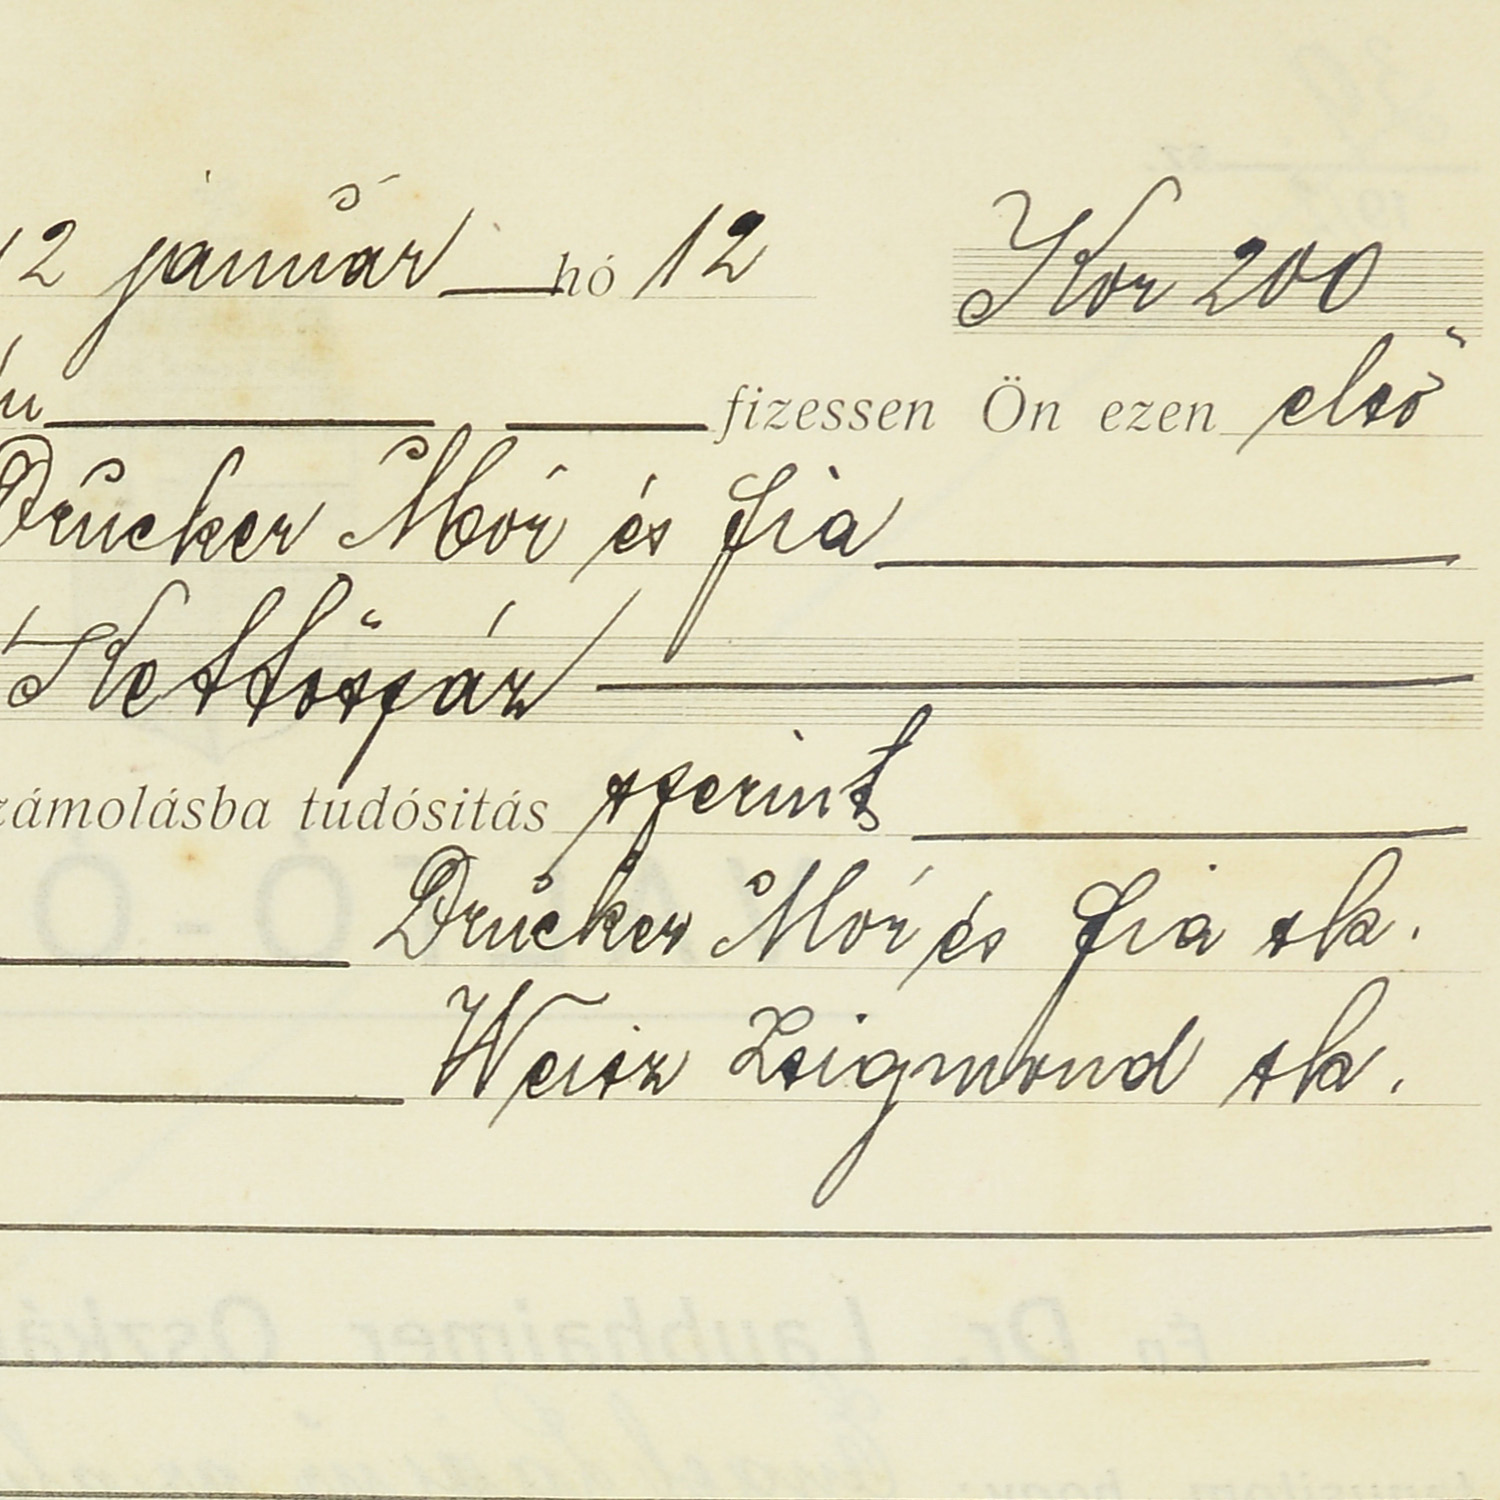 12 január hó 12 Kor 200
fizessen Ön ezen első
Drucker Mór és fia
Kettőszáz
számolásba tudósitás szerint
Drucker Mór és fia sk.
Weisz Zsigmond sk.